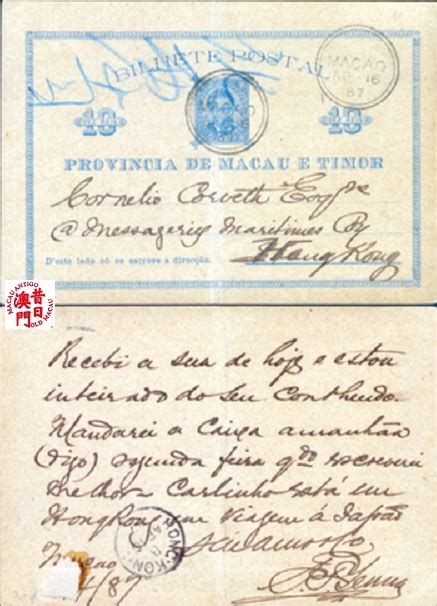 BILHETE POSTAL
MACAO
AP 16
87
10
10
PROVINCIA DE MACAU E TIMOR
Cornelio Corveth Esq
@ Messageries Maritimes Cy
Hong Kong
D'este lado só se escreve a direcção.
MACAU ANTIGO
昔日
澳門
OLD MACAU
Recebi a sua de hoje e estou
inteirado do seu contheudo.
Mandarei a Caixa amanhãa
(digo) segunda feira qdo escreverei
melhor. Carlinho está em
HongKong em viagem á Japão
HONG-KONG
Macao
/4/87